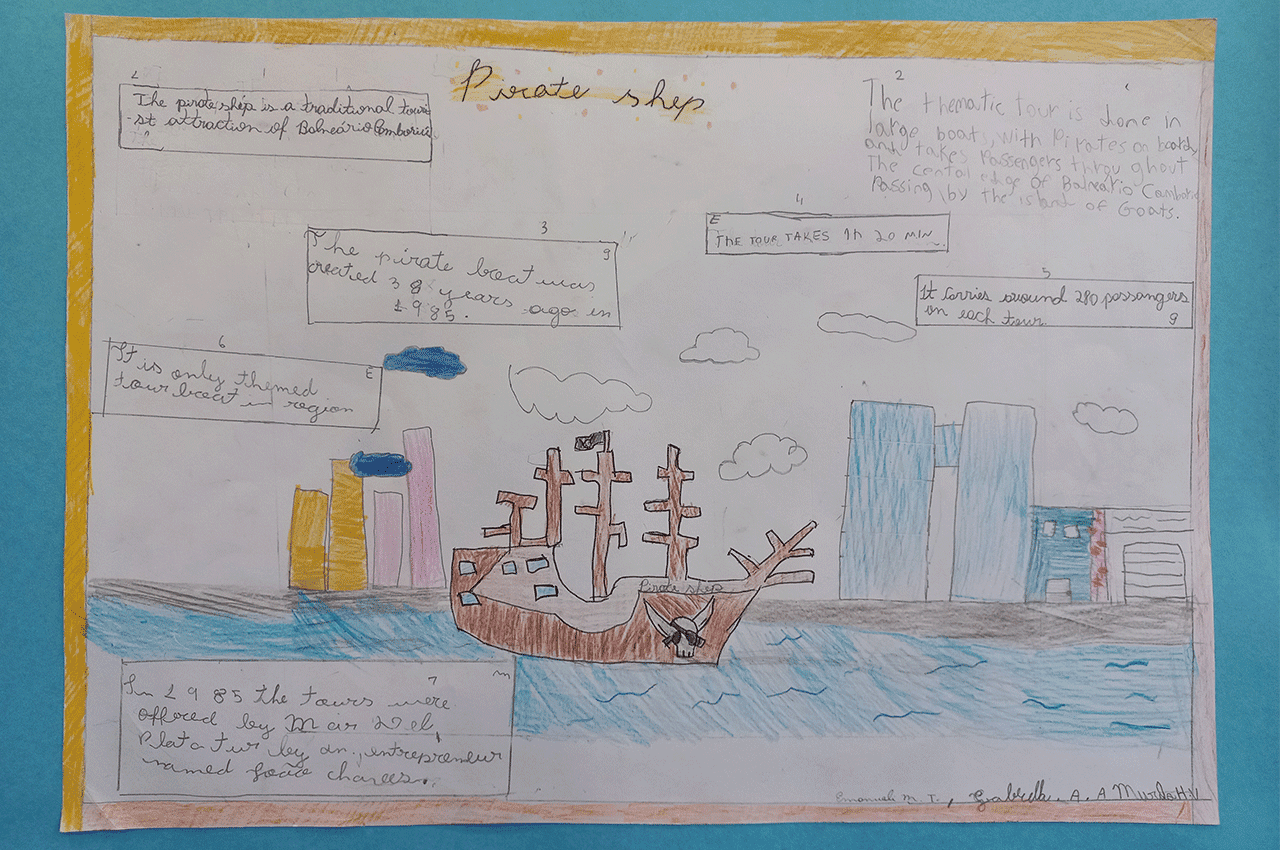 Pirate ship
1
The pirate ship is a traditional touri
-st attraction of Balneário Camboriú
2
The thematic tour is done in
large boats, with Pirates on board,
and takes Passengers throu ghout
The central edge of Balneário Camboriú
Passing by the island of Goats.
3
g
The pirate boat was
created 38 years
ago in
1985.
4
E
THE TOUR TAKES 1h 20 MIN
5
It carries around 280 passangers
in each tour.
g
6
E
It is only themed
tour boat in region
Pirate ship
7
m
In 1985 the tours were
offered by
Plata tur by an, entrepreneur
named João
Emanueli M. T., Gabrielli. A. A